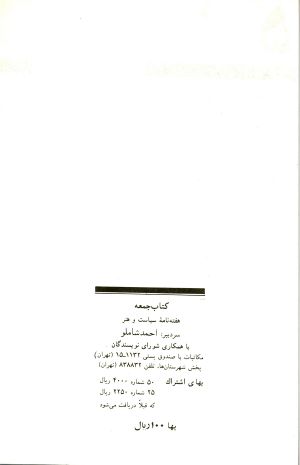 کتاب جمعه
هفته‌نامهٔ سیاست و هنر
سردبیر: احمد شاملو
با همکاری شورای نویسندگان
مکاتبات با صندوق پستی ۱۱۳۲ـ۱۵ (تهران)
پخش شهرستان‌ها، تلفن ۸۳۸۸۳۲ (تهران)
بهای اشتراک ۵۰ شماره ۴۰۰۰ ریال
۲۵ شماره ۲۲۵۰ ریال
که قبلاً دریافت می‌شود
بها ۱۰۰ ریال